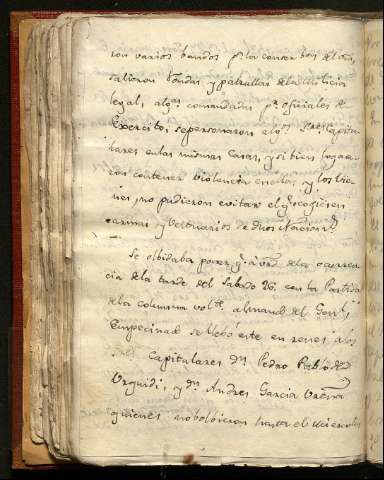 ron varios bandos pa la conserbon del orn,
salieron Rondas y patrullas de la Justicia
legal, algs comandadas pr oficiales de
Exercito, se personaron algs Sres Capitu
lares en las mismas Casas, y si bien logra-
ron contener violencia en ellas, y los vie-
nes, no pudieron evitar el q. se cogiesen
armas y bestuarios de dhos Nacions
Se olbidaba poner q. a vrd de la ocurren
cia de la tarde del Sabado 26. con la Partida
de la columna volte al mando del Genl
Empecinado se llebó este en renes a los
Sres Capitulares Dn Pedro Pablo de
Urquidi, y Dn Andres Garcia Urena
quienes no bolbieron hasta el miercoles